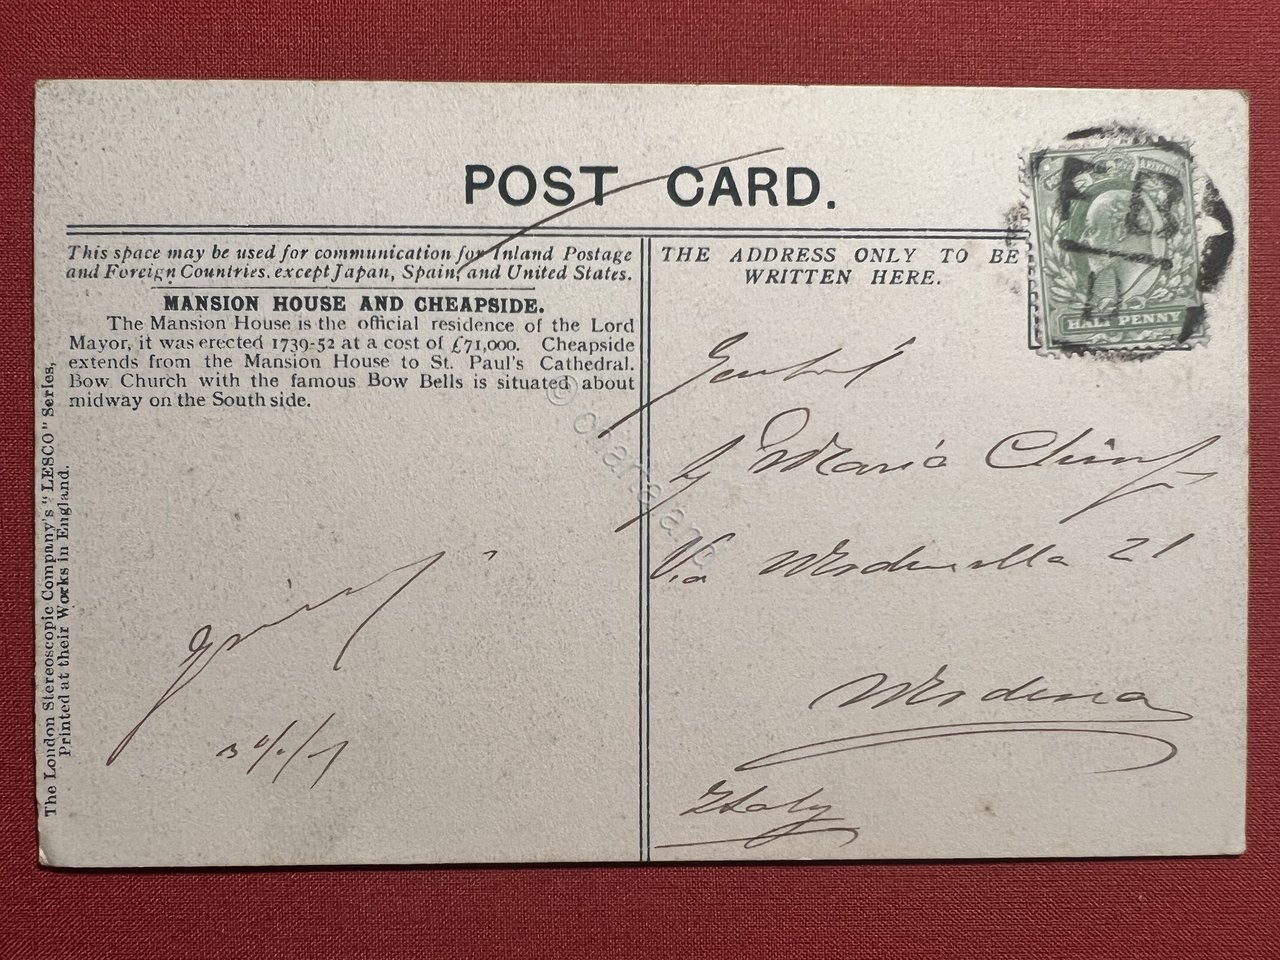 POST CARD.
This space may be used for communication for Inland Postage
and Foreign Countries, except Japan, Spain, and United States.
MANSION HOUSE AND CHEAPSIDE.
The Mansion House is the official residence of the Lord
Mayor, it was erected 1739-52 at a cost of £71,000. Cheapside
extends from the Mansion House to St. Paul's Cathedral.
Bow Church with the famous Bow Bells is situated about
midway on the South side.
The London Stereoscopic Company's "LESCO" Series,
Printed at their Works in England.
THE ADDRESS ONLY TO BE
WRITTEN HERE.
FB
HALF PENNY
Maria
Via Modenella 21
Modena
Italy
© cartaland